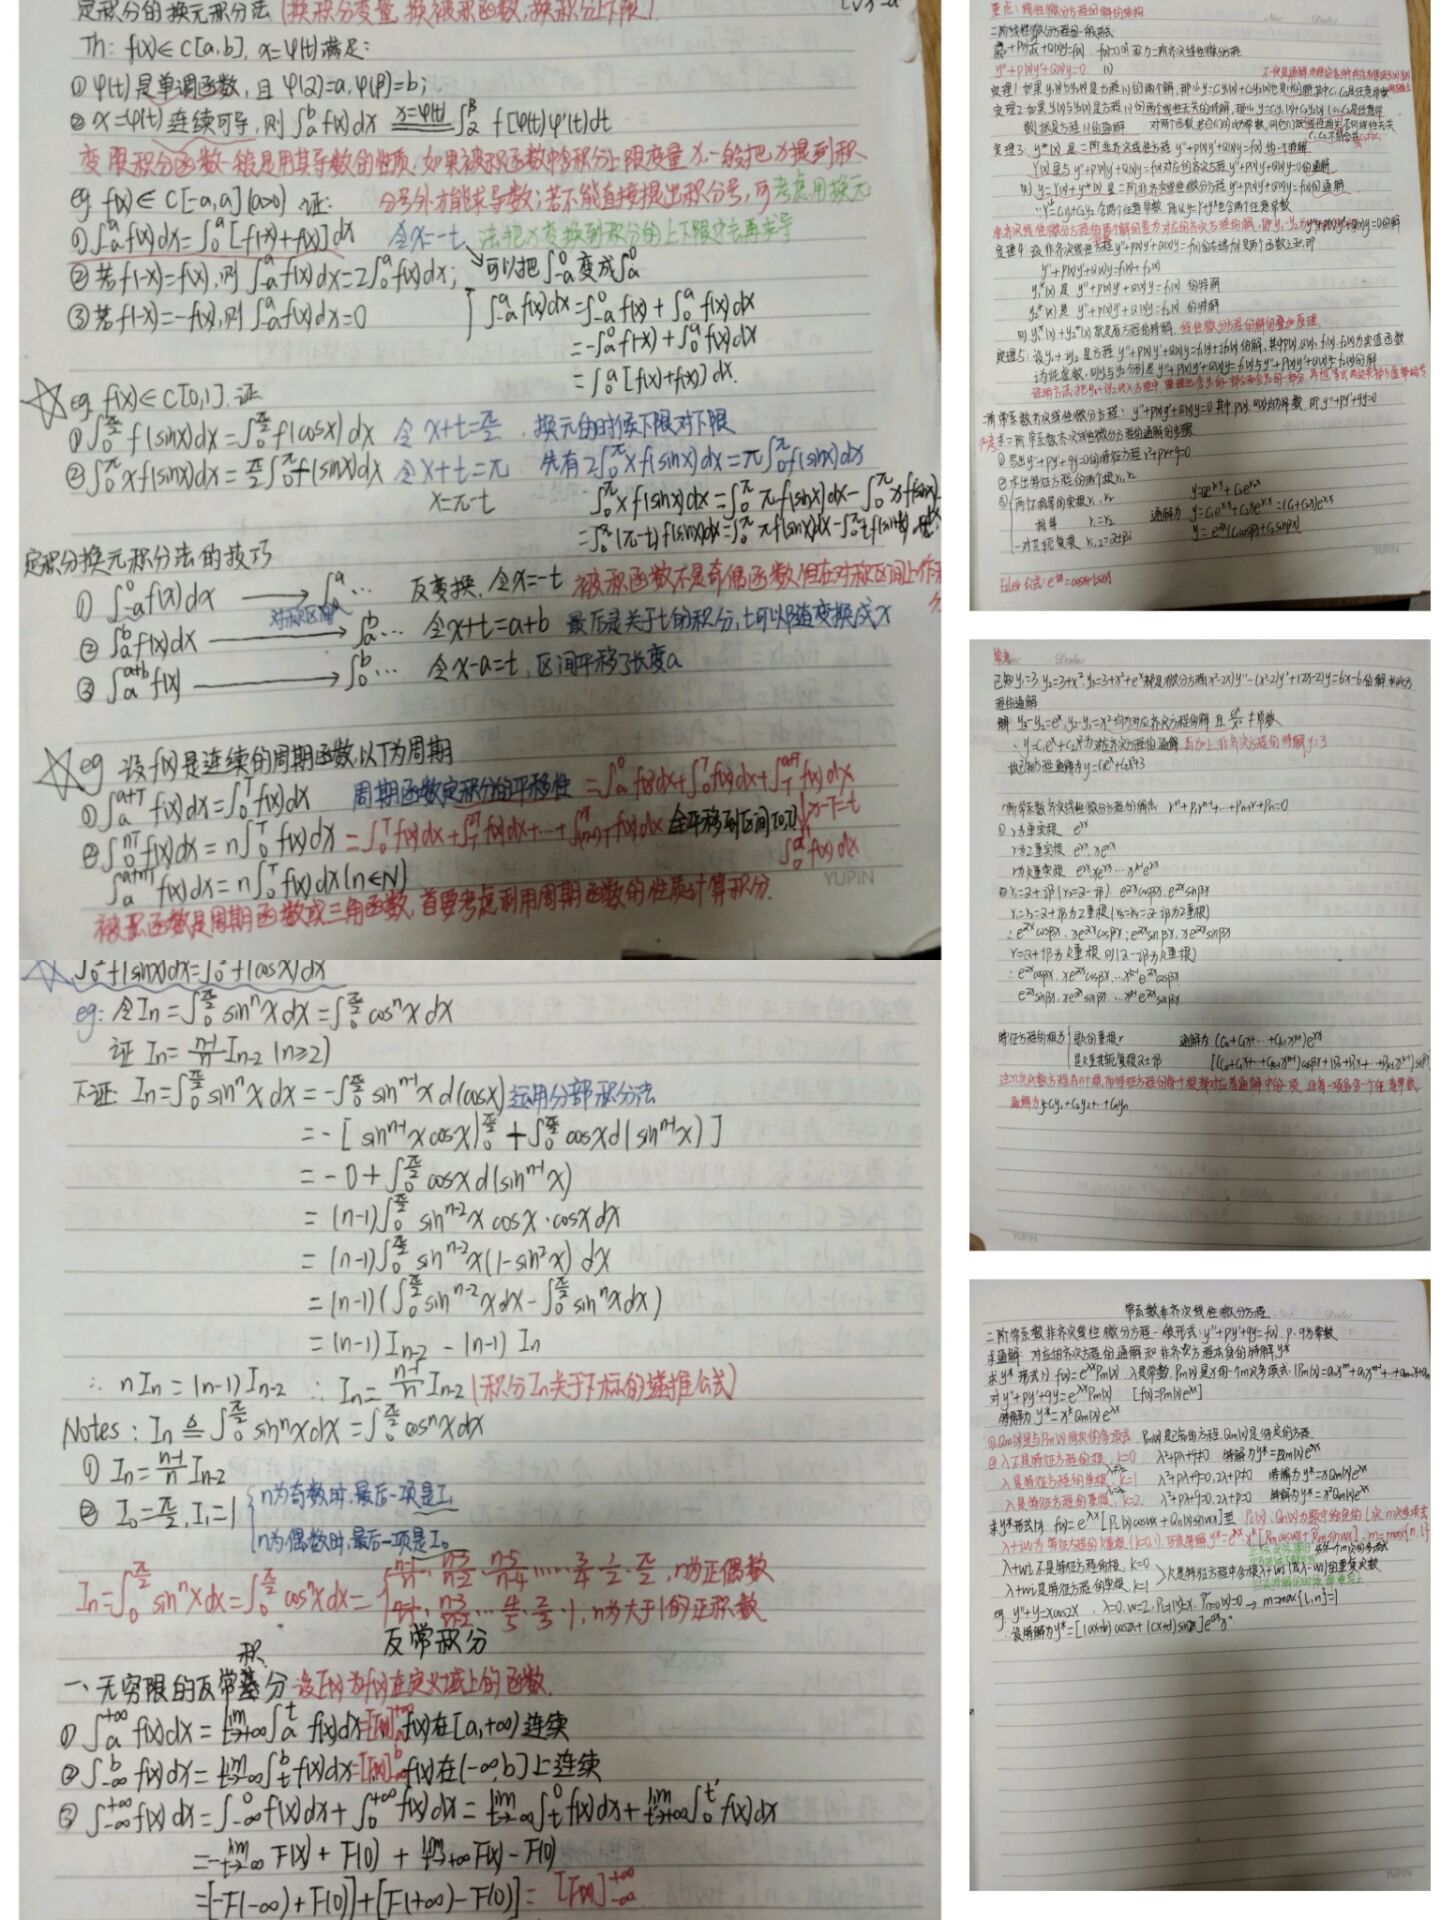 定积分的换元积分法(换积分变量,换被积函数,换积分上下限)
Th: f(x)∈C[a,b], x=φ(t)满足:
①φ(t)是单调函数,且φ(α)=a,φ(β)=b;
②x=φ(t)连续可导,则∫_a^b f(x)dx \overset{x=φ(t)}{=} ∫_α^β f[φ(t)]φ'(t)dt
变限积分函数一般是用其导数的性质.如果被积函数中含积分上限变量x,一般把x提到积
分号外才能求导数;若不能直接提出积分号,可考虑用换元
法把x变换到积分的上下限中去再求导
eg f(x)∈C[-a,a](a>0) 证:
①∫_{-a}^a f(x)dx=∫_0^a [f(-x)+f(x)]dx 令x=-t
②若f(-x)=f(x),则∫_{-a}^a f(x)dx=2∫_0^a f(x)dx; 可以把∫_{-a}^0变成∫_0^a
③若f(-x)=-f(x),则∫_{-a}^a f(x)dx=0
∫_{-a}^a f(x)dx=∫_{-a}^0 f(x)+∫_0^a f(x)dx
=-∫_a^0 f(-x)+∫_0^a f(x)dx
=∫_0^a [f(x)+f(-x)]dx.
eg f(x)∈C[0,1],证
①∫_0^{π/2} f(sinx)dx=∫_0^{π/2} f(cosx)dx 令x+t=π/2 换元的时候下限对下限
②∫_0^π xf(sinx)dx=π/2∫_0^π f(sinx)dx 令x+t=π 先有2∫_0^π xf(sinx)dx=π∫_0^π f(sinx)dx
x=π-t ∫_0^π xf(sinx)dx=∫_0^π πf(sinx)dx-∫_0^π xf(sinx)
=∫_0^π(π-t)f(sinx)dx=∫_0^π πf(sinx)dx-∫_0^π tf(sint)
定积分换元积分法的技巧
①∫_{-a}^0 f(x)dx → ∫_0^a … 反变换,令x=-t 被积函数不是奇偶函数,但在对称区间上作
②∫_a^b f(x)dx → ∫_a^b … 令x+t=a+b 最后是关于t的积分,t可以随意变换成x
对称区间
③∫_a^{a+b} f(x) → ∫_0^b … 令x-a=t,区间平移了长度a
eg 设f(x)是连续的周期函数,以T为周期
①∫_a^{a+T} f(x)dx=∫_0^T f(x)dx 周期函数定积分的平移性 =∫_a^0 f(x)dx+∫_0^T f(x)dx+∫_T^{a+T} f(x)dx
②∫_0^{nT} f(x)dx=n∫_0^T f(x)dx=∫_0^T f(x)dx+∫_T^{2T} f(x)dx+…+∫_{(n-1)T}^{nT} f(x)dx 全平移到区间[0,T] x-T=t
∫_a^{a+nT} f(x)dx=n∫_0^T f(x)dx(n∈N) ∫_0^a f(x)dx
被积函数是周期函数或三角函数,首要考虑利用周期函数的性质计算积分.
YUPIN
∫_0^{π/2} f(sinx)dx=∫_0^{π/2} f(cosx)dx
eg:令In=∫_0^{π/2} sin^n xdx=∫_0^{π/2} cos^n xdx
证 In=\frac{n-1}{n}I_{n-2} (n≥2)
下证 In=∫_0^{π/2} sin^n xdx=-∫_0^{π/2} sin^{n-1}xd(cosx) 运用分部积分法
=-[sin^{n-1}xcosx|_0^{π/2}+∫_0^{π/2} cosxd(sin^{n-1}x)]
=-0+∫_0^{π/2} cosxd(sin^{n-1}x)
=(n-1)∫_0^{π/2} sin^{n-2}xcosx·cosxdx
=(n-1)∫_0^{π/2} sin^{n-2}x(1-sin²x)dx
=(n-1)(∫_0^{π/2} sin^{n-2}xdx-∫_0^{π/2} sin^n xdx)
=(n-1)I_{n-2}-(n-1)In
∴ nIn=(n-1)I_{n-2} ∴ In=\frac{n-1}{n}I_{n-2} (积分In关于下标的递推公式)
Notes: In≜∫_0^{π/2} sin^n xdx=∫_0^{π/2} cos^n xdx
①In=\frac{n-1}{n}I_{n-2}
②I₀=π/2, I₁=1 n为奇数时,最后一项是I₁
n为偶数时,最后一项是I₀
In=∫_0^{π/2} sin^n xdx=∫_0^{π/2} cos^n xdx= { \frac{n-1}{n}·\frac{n-3}{n-2}·\frac{n-5}{n-4}……\frac{3}{4}·\frac{1}{2}·\frac{π}{2}, n为正偶数
\frac{n-1}{n}·\frac{n-3}{n-2}…\frac{4}{5}·\frac{2}{3}·1, n为大于1的正积数
反常积分
一、无穷限的反常积分 设F(x)为f(x)在定义域上的函数.
①∫_a^{+∞} f(x)dx=lim_{t→+∞}∫_a^t f(x)dx=[F(x)]_a^{+∞} f(x)在[a,+∞)连续
②∫_{-∞}^b f(x)dx=lim_{t→-∞}∫_t^b f(x)dx=[F(x)]_{-∞}^b f(x)在(-∞,b]上连续
③∫_{-∞}^{+∞} f(x)dx=∫_{-∞}^0 f(x)dx+∫_0^{+∞} f(x)dx=lim_{t→-∞}∫_t^0 f(x)dx+lim_{t→+∞}∫_0^t f(x)dx
=-lim_{t→-∞}F(x)+F(0)+lim_{t→+∞}F(x)-F(0)
=[-F(-∞)+F(0)]+[F(+∞)-F(0)]=[F(x)]_{-∞}^{+∞}
重点:线性微分方程的解的结构
二阶线性微分方程的一般形式
y''+P(x)y'+Q(x)y=0 (1)
定理1 如果y₁(x)与y₂(x)是方程(1)的两个解,那么y=C₁y₁(x)+C₂y₂(x)也是(1)的解,其中C₁,C₂是任意常数
定理2 如果y₁(x)与y₂(x)是方程(1)的两个线性无关的特解,那么y=C₁y₁(x)+C₂y₂(x) (C₁,C₂是任意常
数)就是方程(1)的通解
定理3:y*(x)是二阶非齐次线性方程y''+P(x)y'+Q(x)y=f(x)的一个特解
Y(x)是与y''+P(x)y'+Q(x)y=f(x)对应的齐次方程y''+P(x)y'+Q(x)y=0的通解
则y=Y(x)+y*(x)是二阶非齐次线性微分方程y''+P(x)y'+Q(x)y=f(x)的通解
∵Y=C₁y₁+C₂y₂含两个任意常数,所以y=Y+y*也含两个任意常数
定理4 设非齐次线性方程y''+P(x)y'+Q(x)y=f(x)的右端f(x)是两个函数之和,即
y''+P(x)y'+Q(x)y=f₁(x)+f₂(x)
y₁*(x)是 y''+P(x)y'+Q(x)y=f₁(x) 的特解
y₂*(x)是 y''+P(x)y'+Q(x)y=f₂(x) 的特解
则y₁*(x)+y₂*(x)就是原方程的特解.线性微分方程的解的叠加原理
定理5:设y₁+iy₂是方程y''+P(x)y'+Q(x)y=f₁(x)+if₂(x)的解,其中P(x),Q(x),f₁(x),f₂(x)为实值函数
二阶常系数齐次线性微分方程:y''+P(x)y'+Q(x)y=0,其中P(x),Q(x)均为常数,即y''+py'+qy=0
求二阶常系数齐次线性微分方程的通解的步骤
①写出y''+py'+qy=0的特征方程r²+pr+q=0
②求出特征方程的两个根r₁,r₂
③两个不相等的实根r₁,r₂ y=C₁e^{r₁x}+C₂e^{r₂x}
相等 r₁=r₂ 通解为 y=C₁e^{rx}+C₂xe^{rx}=(C₁+C₂x)e^{rx}
一对共轭复根r₁,₂=α±βi y=e^{αx}(C₁cosβx+C₂sinβx)
YUPIN
常考
已知y₁=3,y₂=3+x²,y₃=3+x²+e^x都是微分方程(x²-2x)y''-(x²-2)y'+(2x-2)y=6x-6的解,求此方
程的通解
解 y₃-y₂=e^x,y₂-y₁=x²均为对应齐次方程的解 且 e^x/x²≠常数
∴y=C₁e^x+C₂x²为对应齐次方程的通解 再加上非齐次方程的特解y=3
故已知方程通解为y=C₁e^x+C₂x²+3
n阶常系数齐次线性微分方程的解法 rⁿ+P₁rⁿ⁻¹+…+Pₙ₋₁r+Pₙ=0
①r为单实根 e^{rx}
r为2重实根 e^{rx},xe^{rx}
r为k重实根 e^{rx},xe^{rx}…x^{k-1}e^{rx}
②r₁=α+iβ(r₂=α-iβ) e^{αx}cosβx,e^{αx}sinβx
r₁=r₂=α+iβ为2重根(r₃=r₄=α-iβ为2重根)
:e^{αx}cosβx,xe^{αx}cosβx;e^{αx}sinβx,xe^{αx}sinβx
r=α+iβ为k重根 则(α-iβ为k重根)
:e^{αx}cosβx,xe^{αx}cosβx,…x^{k-1}e^{αx}cosβx
e^{αx}sinβx,xe^{αx}sinβx,…x^{k-1}e^{αx}sinβx
特征方程的根为 是k重根r 通解为(C₀+C₁x+…+C_{k-1}x^{k-1})e^{rx}
是k重共轭复根α±iβ
通解为y=C₁y₁+C₂y₂+…+Cₙyₙ
常系数非齐次线性微分方程
二阶常系数非齐次线性微分方程一般形式:y''+py'+qy=f(x) p、q为常数
求通解 对应的齐次方程的通解和非齐次方程本身的特解y*
求y*形式1) f(x)=e^{λx}Pm(x) λ是常数,Pm(x)是x的一个m次多项式
对y''+py'+qy=e^{λx}Pm(x) [f(x)=Pm(x)e^{λx}]
特解为y*=x^kQm(x)e^{λx}
①Qm(x)是与Pm(x)同次的多项式 Pm(x)是已知的方程,Qm(x)是待定的方程.
②λ不是特征方程的根,k=0 λ²+pλ+q≠0 特解为y*=Qm(x)e^{λx}
λ是特征方程的单根,k=1 λ²+pλ+q=0,2λ+p≠0 特解为y*=xQm(x)e^{λx}
λ是特征方程的重根,k=2 λ²+pλ+q=0,2λ+p=0 特解为y*=x²Qm(x)e^{λx}
λ+wi不是特征方程的根,k=0
λ+wi是特征方程的单根,k=1
eg. y''+y=xcos2x
YUPIN